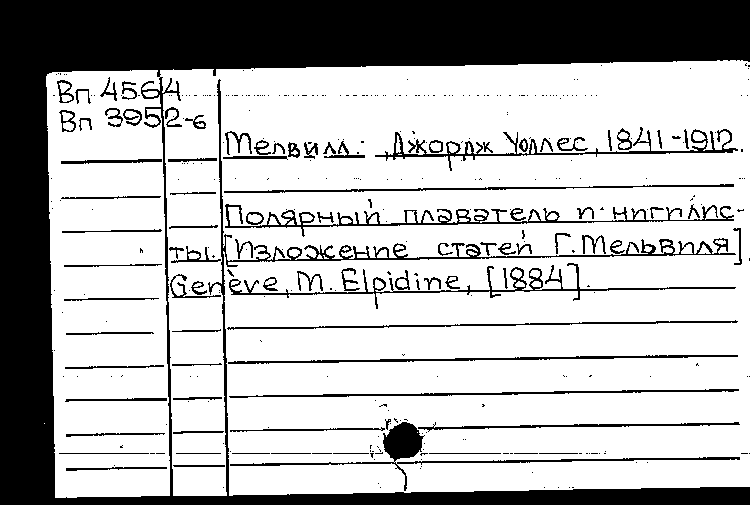 Вп 4564
Вп 3952-б
Мелвилл, Джордж Уоллес, 1841-1912.
Полярный плаватель и нигилис-
ты. [Изложение статей Г. Мельвиля]
Genève, M. Elpidine, [1884].